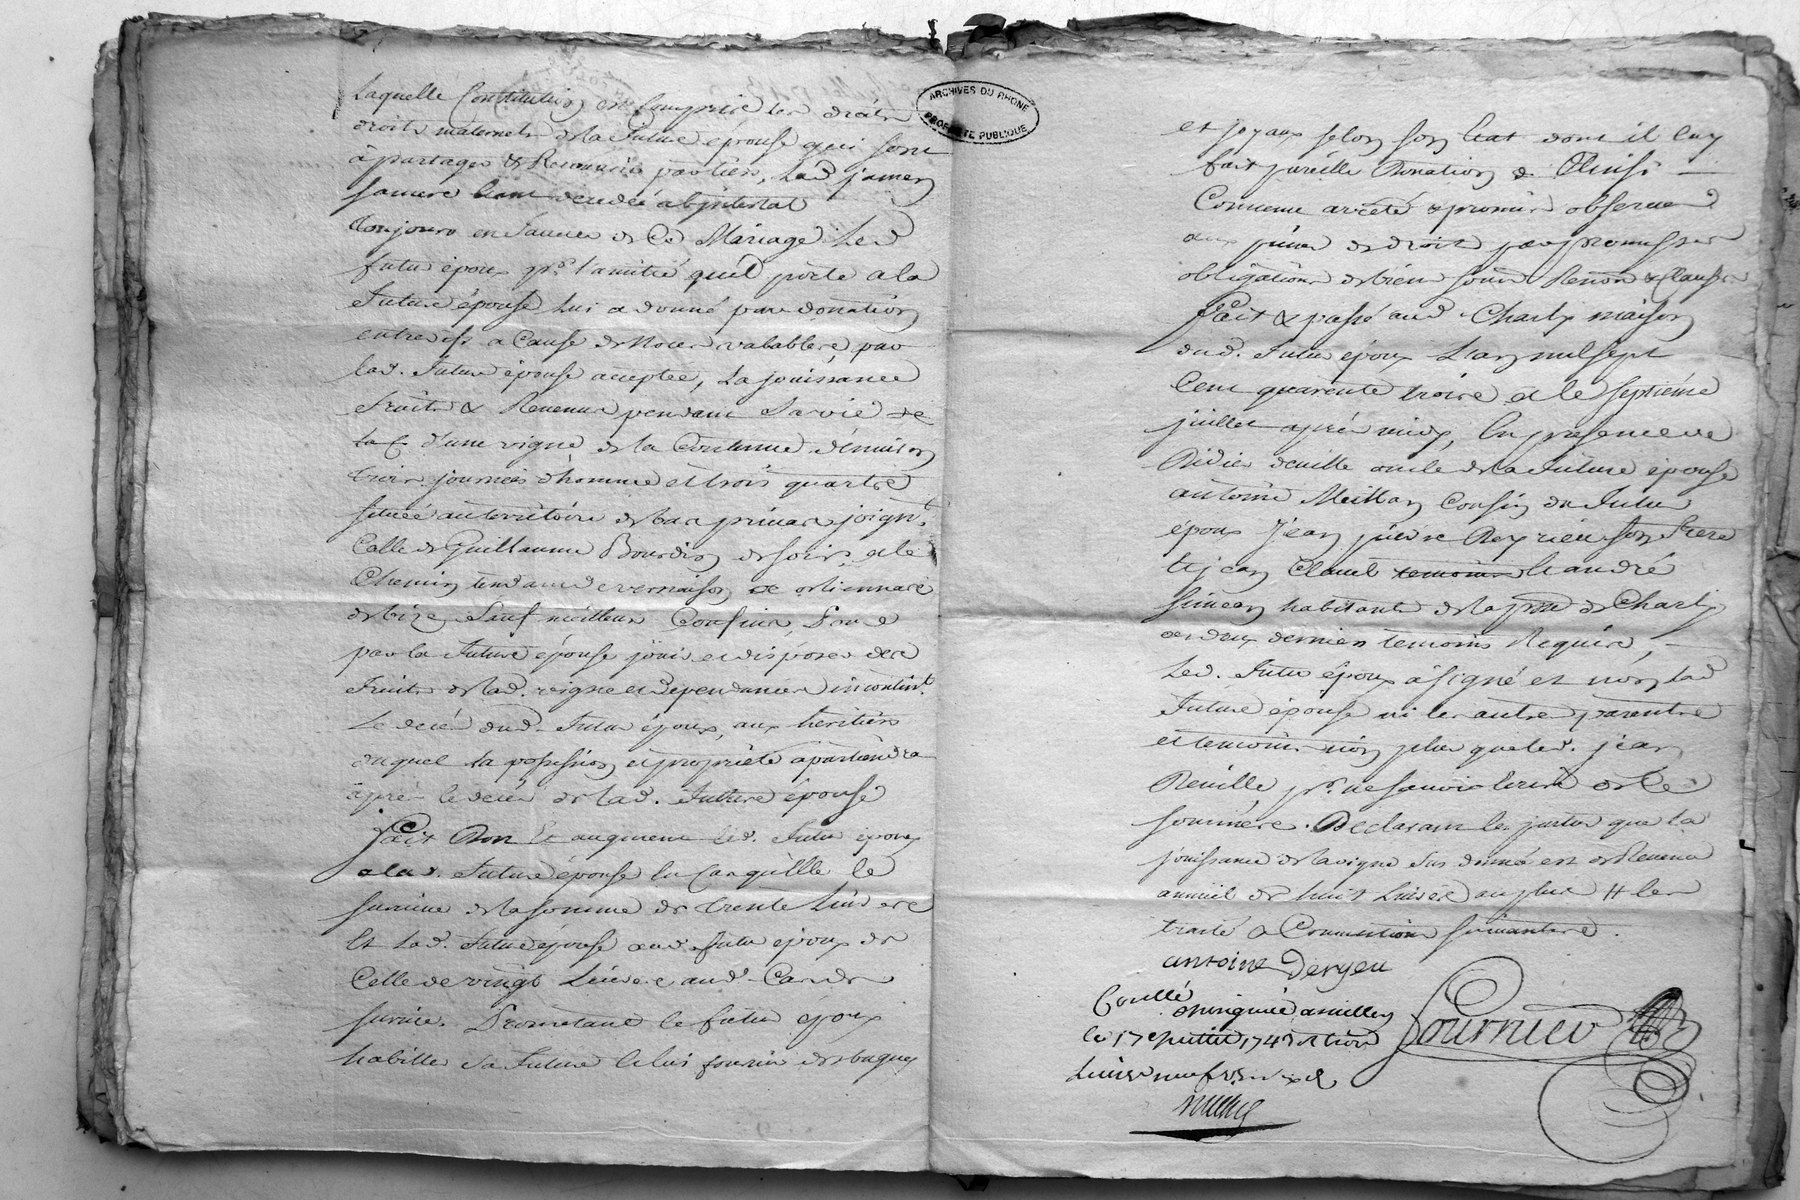 Laquelle Constitution est Comprise les droits
droits maternels de la Future épouse qui sont
à partager & par tiers, Lad jamen
sa mere étant decedée abjntestat
Toujours en faveur de Ce Mariage Led
futur époux pr. l'amitié quil porte a la
Future épouse Lui a donné par donation
entre vifs a Cause de Noces valable par
lad. Future épouse acceptée, La jouissance
Fruits & Revenus pendant sa vie de
d'une vigne de la Contenue d'environ
trois journées d'homme et trois quarts
située au territoire de joignt.
Celle de Guillaume Bourdin de soir, et le
Chemin tendant de vernaison
de bize Sauf meilleurs Confins, Pour
par la Future épouse jouir et disposer des
Fruits de lad. vigne et dependances incontint.
Le decés dud. Futur époux, aux heritiers
duquel la possession et propriété apartiendra
après le decés de lad. Future épouse
Fait Don Et augment led. Futur époux
a lad. Future épouse En Cas quelle le
survive de la somme de trente Livres
Et Lad. Future épouse aud. futur époux de
Celle de vingt Livres aud. Cas de
survie. Promettant le futur époux
habiller sa Future et lui fournir des bagues
ARCHIVES DU RHONE
PROPRIÉTÉ PUBLIQUE
et joyaux selon son Etat dont il luy
fait pareille Donation & Ainsi
Convenu arrêté & promis observer
aux peines de droit par promesses
obligations de biens soum Renon & Clauses
Fait & passé aud. Charly maison
dud. Futur époux L'an mil sept
Cent quarente trois et le septième
juillet après midy, En presence de
Didier deville oncle de la Future épouse
antoine Meillan Cousin du Futur
époux Jean pierre son Frere
& jean Claude temoins & andré
simean habitants de la psse de Charly
ces deux derniers temoins Requis,
Led. Futur époux à signé et non lad
Future épouse ni les autre parents
et temoins non plus que led. jean
Deville pr. ne savoir Ecrire de Ce
sommés. Declarant les parties que la
jouissance de la vigne sus donné est de Revenu
annuel de huit Livres au plus # les
traité & Conventions suivantes.
antoine Deryeu
Conllé
a millery
le 17e juillet 1743
Livres neuf
Fournier